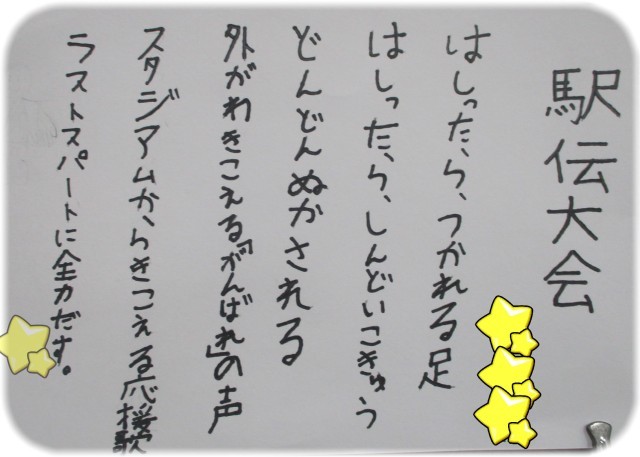 駅伝大会
はしったら、つかれる足
はしったら、しんどいこきゅう
どんどんぬかされる
外がわきこえる「がんばれ」の声
スタジアムからきこえる応援歌
ラストスパートに全力だす。